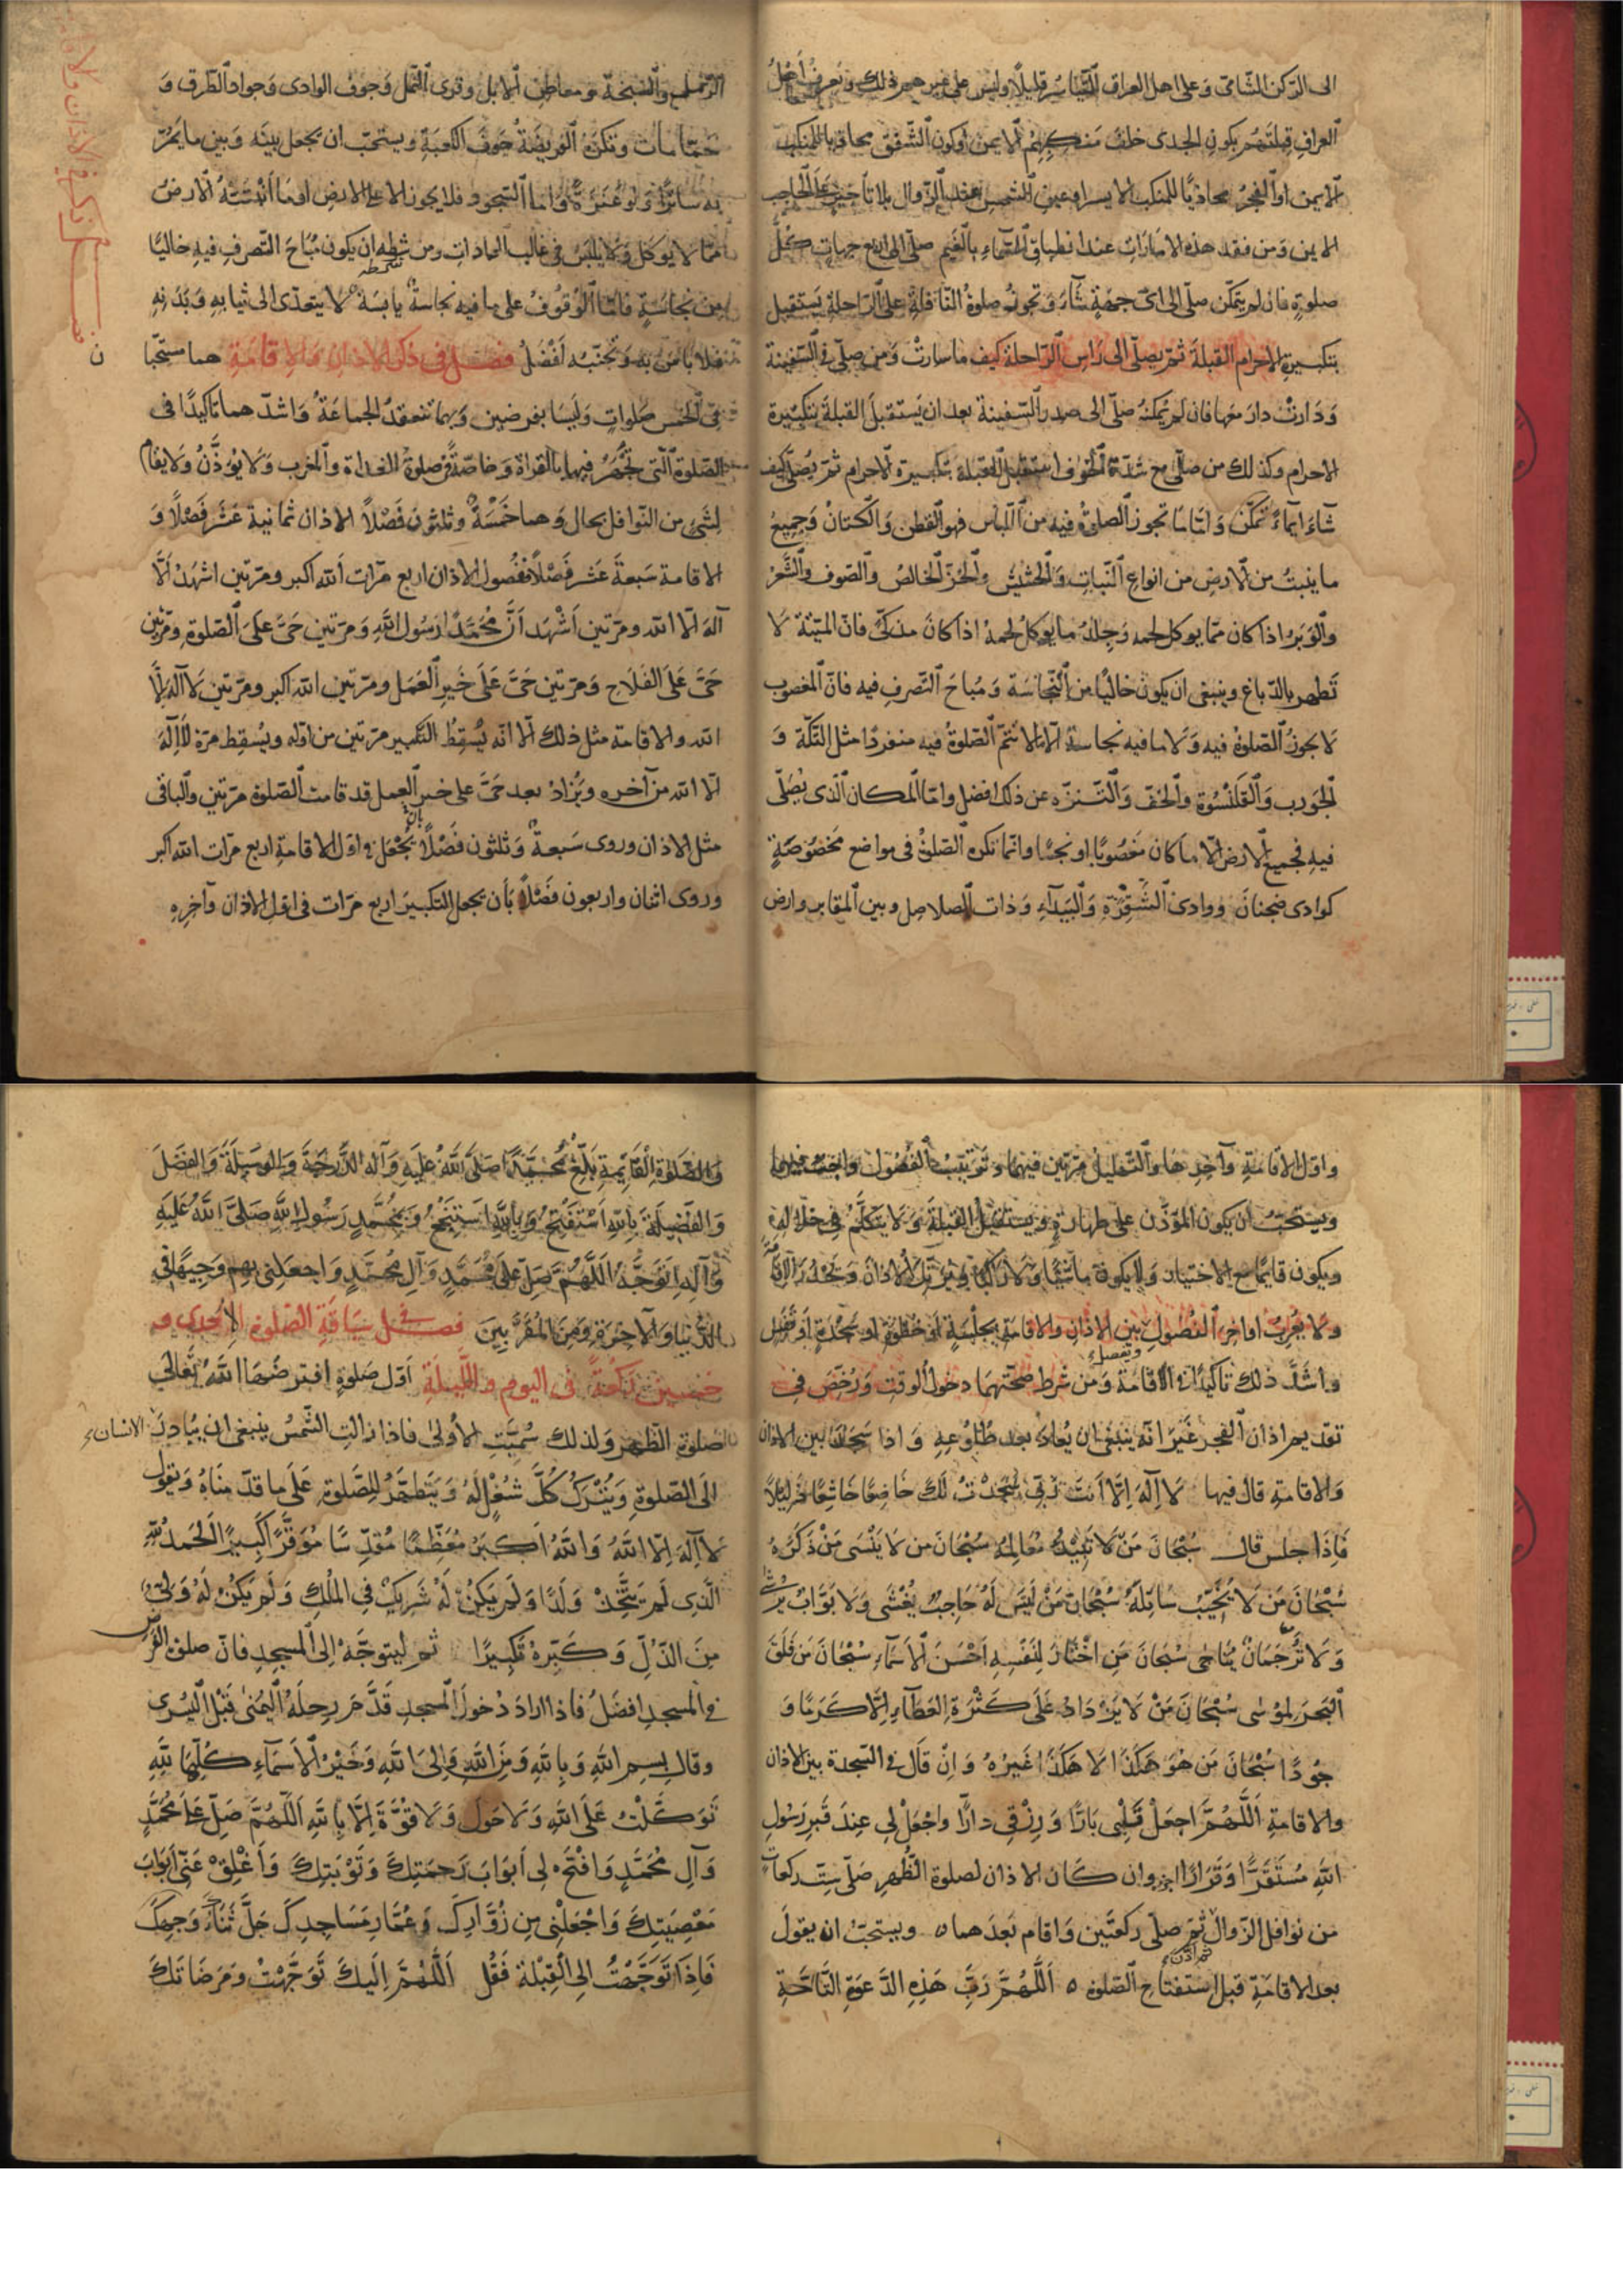 الى الركن الشامى وَعلى اهل العراق التياسر قليلًا وليس على غيرهم ذلك ويعرف أهل
العراق قبلتهم بكون الجدى خلف منكبهم الايمن اوكون الشفق محاذيا للمنكب
الايمن اوالفجر محاذيًا للمنكب الايسر اوعين الشمس عند الزوال بلا تأخير على الحاجب
الايمن وَمن فقد هذه الامارات عند انطباق السماء بالغيم صلّى الى اربع جهات كلّ
صلوةٍ فان لم يتمكّن صلّى الى اىّ جهةٍ شآءَ وَتجوز صلوةُ النّافلةِ على الرّاحلةِ يَستقبل
بتكبيرة الاحرام القبلةَ ثمّ يصلّى الى رَاسِ الرّاحلة كيف ما سارتْ وَمن صلّى فى السّفينة
وَدَارتْ دارَ معها فان لم يمكنهُ صلّى الى صدر السّفينة بعد ان يَستقبلَ القبلةَ بتكبيرة
الاحرام وكذلك من صلّى مع شدّة الخوف استقبل القبلة بتكبيرة الاحرام ثمّ يُصلّى كيف
شآءَ ايمآءً تمكّن وَامّا ما تجوز الصلوة فيه من اللّباس فهو القطن وَالكتانُ وَجميعُ
ما ينبتُ من الارضِ من انواع النّباتِ وَالحشيش والخزّ الخالصُ والصّوف والشَّعرُ
والوَبَرُ اذا كان ممّا يوكل لحمه وَجِلدُ ما يوكلُ لحمهُ اذا كانَ مذكىً فانّ الميتة لا
تَطهر بالدّباغ وينبغى ان يكون خاليًا من النّجاسَة وَمُباحَ التّصرفِ فيه فانّ المغصوب
لا يجوزُ الصّلوةُ فيه وَلا ما فيه نجاسة الّا ما لا تتمّ الصّلوةُ فيه منفردًا مثل التكّة وَ
الجَورب وَالقَلنْسُوَة والخفّ وَالتنزّه عن ذلك افضل وامّا المكان الّذى يُصَلّى
فيهِ فجميع الارض الّا ما كان مَغصُوبًا او نجسًا وانّما تكره الصّلوةُ فى مواضع مَخصُوصَةٍ
كوادى ضجنانَ ووادى الشّقرةِ وَالبَيدآءِ وَذات الصلاصل وبين المقابر وارض
الرّمل والسّبخة ومعاطن الابل وقرى النّمل وَجوف الوادى وَجواد الطّرق وَ
حمّامات وتكرهُ الفريضَةُ جَوفَ الكعبَةِ ويستحبّ ان يجعل بينَه وَبين ما يمرّ
به ساترًا وَلَو عَنَزَةً وامّا السّجود فلا يجوز الا على الارضِ او ما أنبَتَتهُ الارضُ
ممّا لا يوكل وَلا يلبس فى غالب العادات ومن شرطه ان يكون مُبَاحَ التّصرفِ فيهِ خاليًا
من نجاسَةٍ فامّا الوُقوُفُ على ما فيه نجاسةٌ يابسَةٌ لا يتعدّى الى ثيابهِ وَبَدَنهِ
فلا باس به وَتجنّبه أفضَلُ فصـل فى ذكر الاذان وَالاقامَةِ هما مستحبّا
ن
فى الخمس صَلواتٍ وَليسَا بفرضين وَبهما تنعقدُ الجماعَةُ وَاشدّ هما تاكيدًا فى
الصّلوة الّتى يجهَرُ فيها بالقراة وَخاصّةً صلوة الغداة والمغرب وَلا يؤذَّنُ ولا يقام
لِشىءٍ من النّوافل بحال وَهما خَمْسَةٌ وثلثون فَصْلًا الاذان ثمانية عَشَر فَصْلًا وَ
الاقامة سَبعةَ عَشر فَصْلًا ففُصول الاذان اربع مرّات أللّه اكبر ومرّتين اشهَدُ ألّا
آله الّا اللّه ومرّتين أشْهَد أنَّ مُحَمَّدًا رَسُول اللّهِ وَمرّتين حَىَّ عَلَى الصّلوة ومرّتين
حَىَّ عَلَى الفَلَاح وَمرّتين حَىَّ عَلَى خَيرِ العَمَل ومرّتين اللّه اكبر ومرّتين لا آله الّا
اللّه والاقامة مثل ذلك الّا انّه يُسقِطُ التّكبير مرّتين من اوّله ويُسقِط مرّة لا آله
الّا اللّه من آخره ويُزادُ بعد حَىَّ على خير العمل قد قامت الصّلوة مرّتين والباقى
مثل الاذان وروى سَبعةٌ وَثلثون فَصْلًا بان يجْعَل فى اوّل الاقامةِ اربع مرّات اللّه اكبر
وروى اثنان واربعون فَصْلًا بَأن يجعل التّكبيرَ اربع مَرّات فى اوّل الاذان وآخِرِهِ
واوّل الاقامَةِ وآخِرِهَا والتّهليلُ مرّتين فيهما وترتيبُ الفُصُول واجبٌ فيهما
ويستَحبّ ان يكون المؤذّن على طهارةٍ ويستقبلُ القبلةَ وَلا يتكلّم فى خلالهِ
ويكون قايمًا مع الاختيار وَلا يكون ماشيًا ولا راكبًا ويرتّل الاذان وَيحْدُرَ الاقامة
وَلا يعُربُ اواخِرَ الفُصُولِ ويفصل بين الاذانِ والاقامَةِ بجلسَةٍ أو خطوةٍ او سَجْدَةٍ أو نَفَلٍ
وَاشدَّ ذلك تاكيدًا فى الاقامَة وَمن شَرط صحّتهمَا دخول الوقتِ وَرُخّصَ فى
تقديم اذان الفجر غَيرَ انّه ينبَغى ان يُعادَ بعد طُلُوعِهِ وَاذا سَجَدَ بين الاذان
وَالاقامةِ قال فيها لَا آله اِلّا أنتَ رَبّى سَجَدْتُ لَكَ خَاضِعًا خَاشِعًا ذَلِيلًا
فَاِذَا جلس قال سُبْحَانَ مَنْ لَا تَبِيْدُ مَعَالِمُهُ سُبْحَانَ من لَا يَنْسَى مَنْ ذَكَرَهُ
سُبْحَانَ مَن لَا يُخيّبُ سَائِلَهُ سُبْحَانَ مَنْ لَيْسَ لَهُ حَاجِبٌ يُغْشَى وَلَا بَوَّابٌ يُرْشَى
وَلَا تَرْجَمَانٌ يُنَاجَى سُبْحَانَ مَنِ اخْتَارَ لِنَفْسِهِ اَحْسَنَ الْاَسْمَآءِ سُبْحَانَ مَن فَلَقَ
الْبَحْرَ لِمُوْسٰى سُبْحَانَ مَنْ لَا يَزْدَادُ عَلَى كَثْرَةِ الْعَطَآءِ اِلَّا كَرَمًا وَ
جُوْدًا سُبْحَانَ مَن هُوَ هَكَذَا لَا هَكَذَا غَيْرُهُ وَاِنْ قَالَ فى السّجدة بين الاذان
والاقامةِ اَللّهُمَّ اجعَلْ قَلْبِى بَارًا وَرِزْقى دارًّا وَاجْعَلْ لِي عِندَ قَبرِ رَسُولِ
اللّهِ مُسْتَقَرًّا وَقَرَارًا اجزء وان كَانَ الاذان لصلوة الظُّهرِ صَلّى سِتّ ركعات
من نوافل الزّوال ثمّ اذّن ثمّ صلّى ركعتَين وَاقام بَعدَهما ٥ ويستحبّ ان يقولَ
بعد الاقامَةِ قبل استفتاح الصّلوة ٥ اَللّهُمَّ رَبَّ هَذِهِ الدَّعوَةِ التَّامَّةِ
وَالصَّلوةِ الْقَايِمَةِ بَلِّغْ مُحَمَّدًا صَلَّى اللّهُ عَلَيهِ وَآله الدَّرَجَةَ وَالوَسِيلَةَ وَالفَضْلَ
وَالفَضِيلَةَ بِاللّهِ اَسْتَفْتِحُ وَبِاللّهِ اَسْتَنْجِحُ وَبِمُحَمَّدٍ رَسُولِ اللّهِ صَلَّى اللّهُ عَلَيهِ
وَآلِهِ اَتَوَجَّهُ اَللّهُمَّ صَلِّ عَلَى مُحَمَّدٍ وَآلِ مُحَمَّدٍ وَاجعَلنِى بِهِم وَجِيهًا فى
الدُّنيَا وَالآخِرَةِ وَمِنَ المُقَرَّبِينَ فصــل فى سِيَاقَةِ الصّلوة الاحدى و
خمسين ركعَةً فى اليوم واللّيلَةِ اَوّل صَلوةٍ افترضَهَا اللّهُ تَعَالَى
صلوة الظّهرِ وَلذلك سُمِيَّت الاُولىٰ فاذا زالتِ الشّمسُ ينبغى ان يُبَادِرَ الانسان
الَى الصّلوةِ وَيَتْرُكَ كُلَّ شُغْلٍ لَهُ وَيَتَطَهَّرُ للصَّلوة عَلَى ما قدّمنَاهُ وَيقول
لَا آلَهَ اِلّا اللّهُ وَاللّهُ اَكْبَرُ مُعَظِّمًا مُقَدِّسًا مُوَقَّرًا كَبِيرًا اَلْحَمدُ للّهِ
الَّذِى لَم يَتَّخِذْ وَلَدًا وَلَم يَكُنْ لَهُ شَرِيكٌ فِي المُلكِ وَلَم يَكُنْ لَهُ وَلِىٌّ
مِنَ الذُّلِّ وَكَبّرهُ تَكبِيرًا ثم ليتوجّه اِلىَ المسجدِ فانّ صلوة الفرض
فى المسجدِ افضَلُ فاذا ارادَ دخولَ المسجدِ قَدَّمَ رِجلَهُ اليُمنىٰ قَبْلَ اليُسرى
وقال بِسمِ اللّهِ وَبِاللّهِ وَمِنَ اللّهِ وَاِلىَ اللّهِ وَخَيْرُ الاَسمَآءِ كُلّهَا للّهِ
تَوَكَّلْتُ عَلَى اللّهِ وَلَا حَولَ وَلَا قُوَّةَ اِلّا بِاللّهِ اَللّهُمَّ صَلِّ عَلَى مُحَمَّدٍ
وَآلِ مُحَمَّدٍ وَافْتَح لى أبوَابَ رَحمَتِكَ وَتَوْبَتِكَ وَأَغْلِقْ عَنّى أَبوَابَ
مَعْصِيَتِكَ وَاجْعَلْنِى مِن زُوَّارِكَ وَعُمَّارِ مَسَاجِدِكَ جَلَّ ثَنَاءُ وَجهِكَ
فَاِذَا تَوَجَّهْتَ اِلىَ القِبْلَة فَقُل اَللّهُمَّ اِلَيكَ تَوَجَّهْتُ وَمَرضَاتَكَ